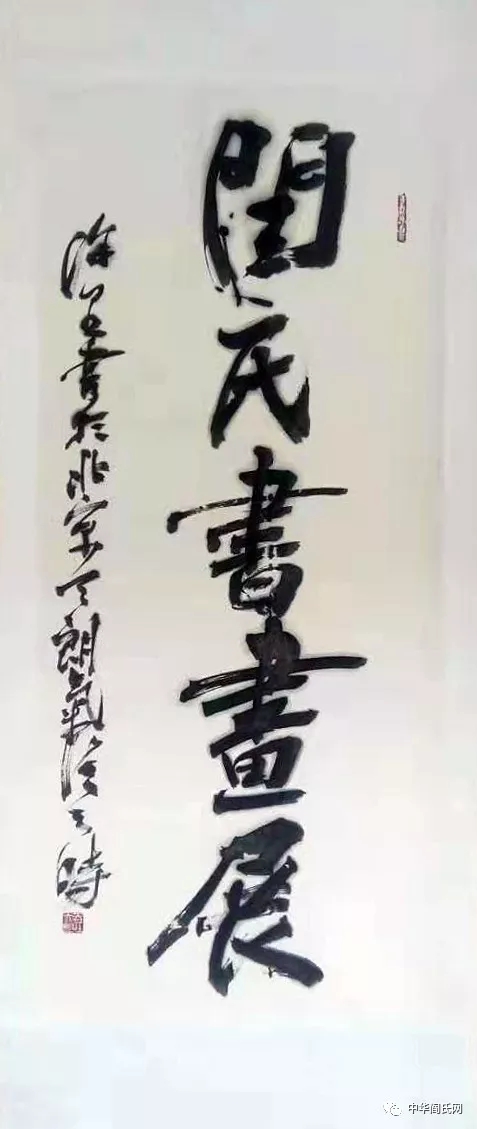 閆氏書畫展
書於北京天朗氣清之時
中华阎氏网